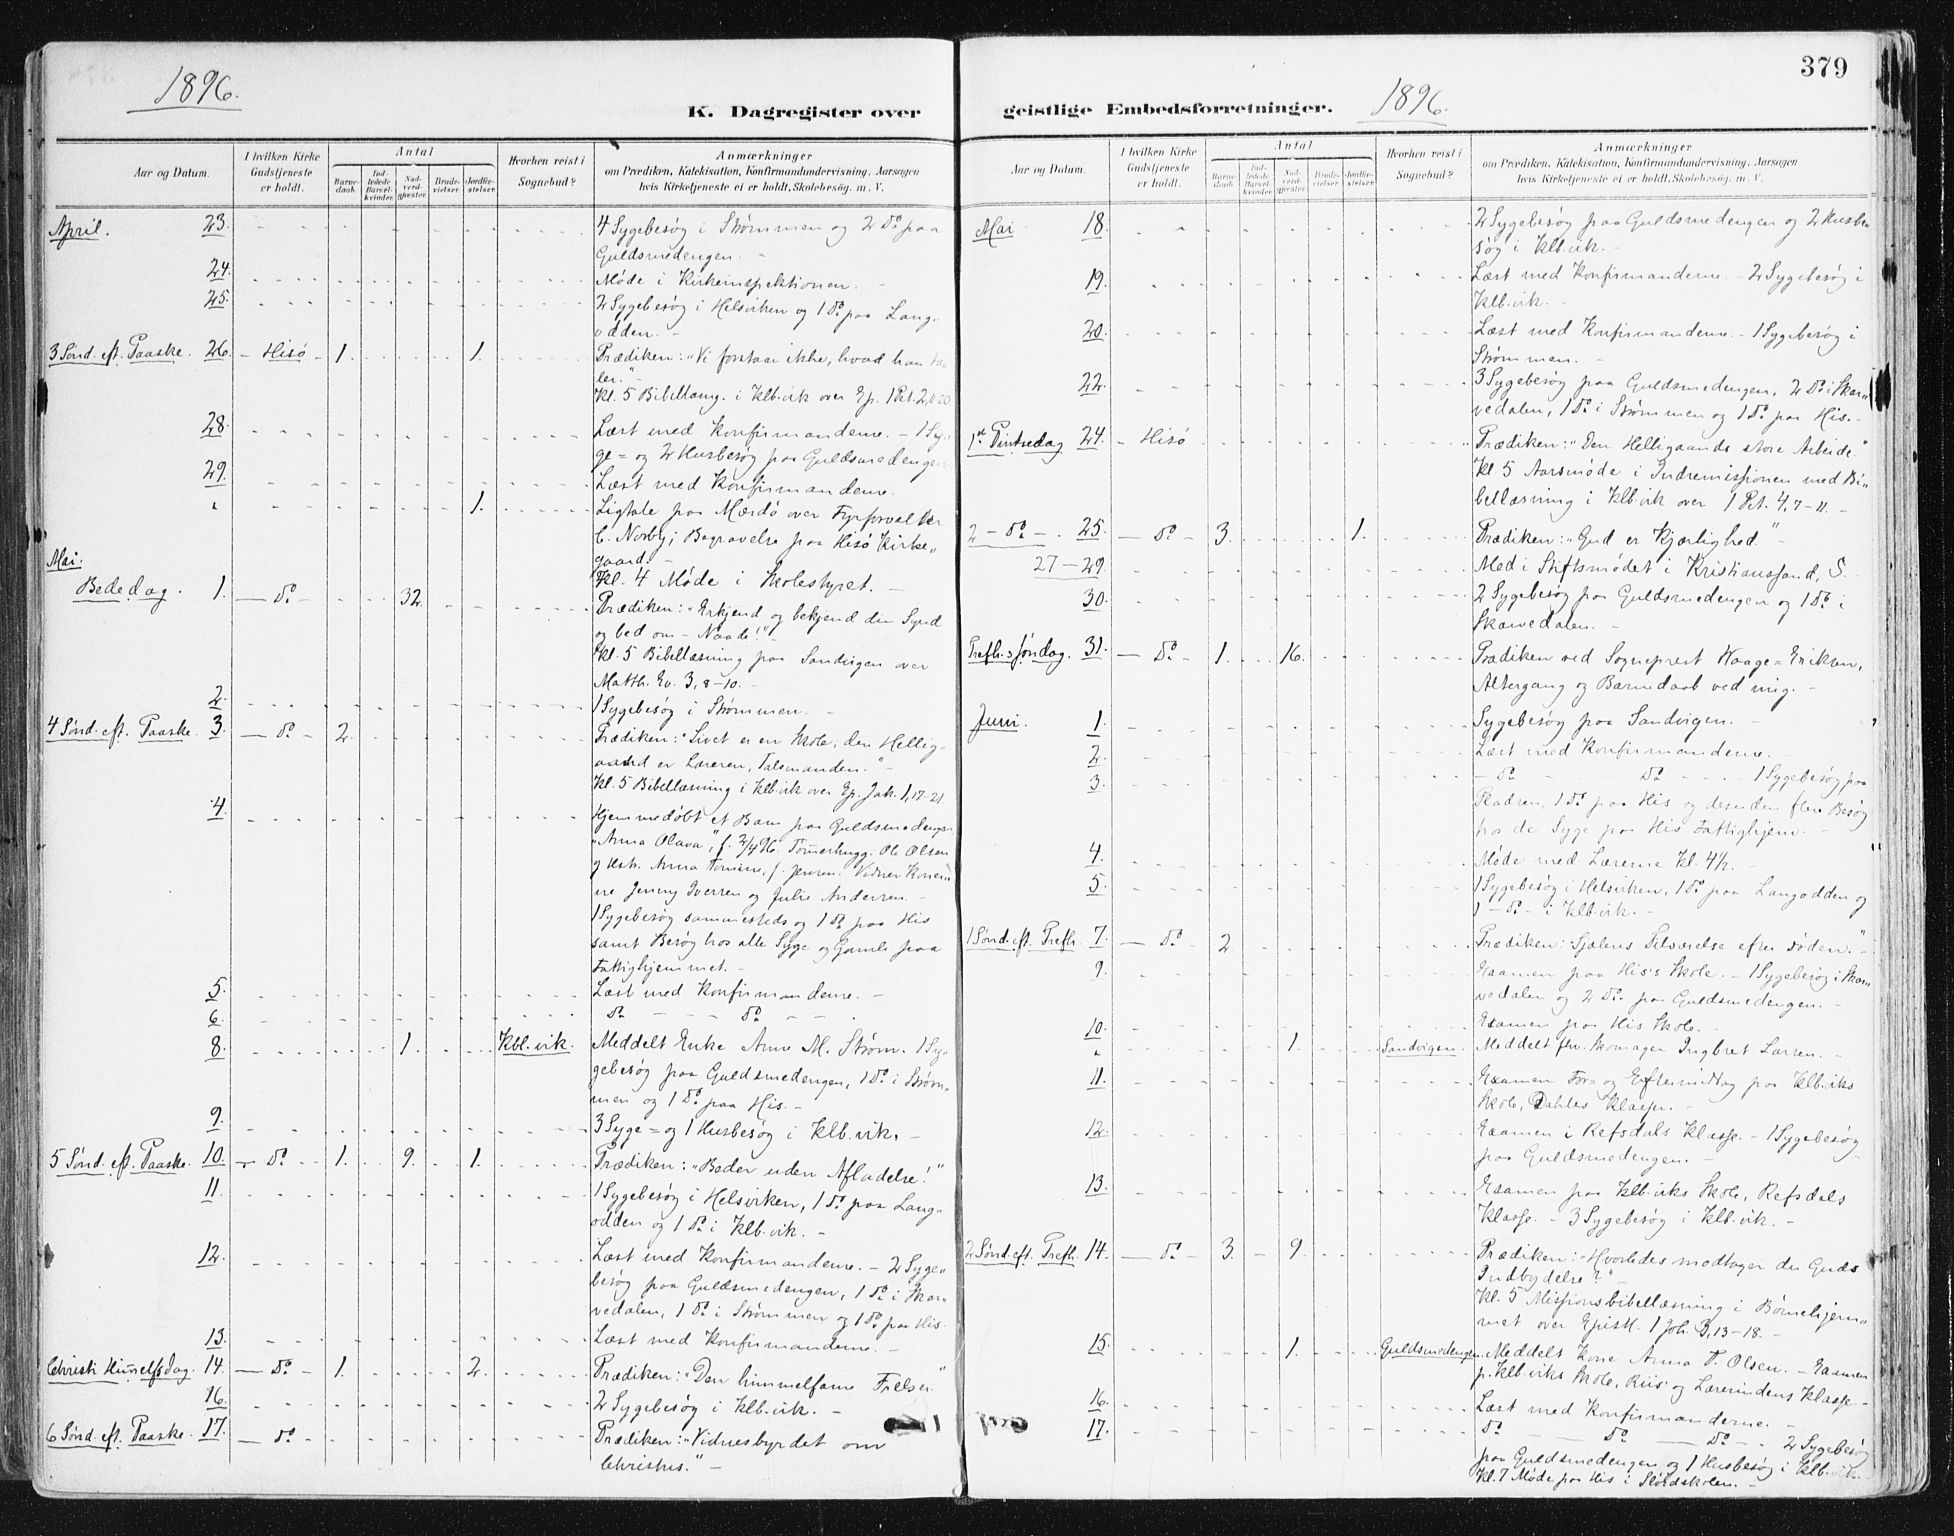 1896.
K. Dagregister over
Aar og Datum.
I hvilken Kirke Gudstjeneste er holdt.
Antal
Barnedaab.
Indledede Barselkvinder.
Nadverdgjæster.
Brudevielser.
Jordfæstelser.
Hvorhen reist i Sognebud?
Anmærkninger
om Prædiken, Katekisation, Konfirmandundervisning, Aarsagen
hvis Kirketjeneste ei er holdt, Skolebesøg, m. V.
April. 23. 4 Sygebesøg i Strømmen og 2 Do paa
Guldsmedengen. -
24. Møde i Kirkeinspektionen. -
25. 2 Sygebesøg i Helsviken og 1 Do paa Lang-
odden. -
3 Sønd. eft. Paaske. 26. - Hisø - 1. 1. Prædiken: "Vi forstaar ikke, hvad han ta-
ler."
Kl. 5 Bibellæsng. i Klb.vik over Ep. 1 Pet. 2, 11-20
28. Læst med Konfirmanderne. - 1 Sy-
ge= og 2 Husbesøg paa Guldsmedengen
29. Læst med Konfirmanderne.
" 1. Ligtale paa Mærdø over Fyrforvalter
C. Norby; Begravelse paa Hisø Kirke-
gaard. -
Kl. 4 Møde i Skolestyret. -
Mai.
Bededag. 1. - Do - 32. Prædiken: "Erkjend og bekjend din Synd
og bed om - Naade!"
Kl. 5 Bibellæsning paa Sandvigen over
Matth. Ev. 3, 8-10. -
2. 1 Sygebesøg i Strømmen. -
4 Sønd. eft. Paaske. 3. - Do - 2. Prædiken: "Livet er en Skole, den Hellig-
aand er Læreren, Talsmanden." -
Kl. 5 Bibellæsning i Klb.vik over Ep. Jak. 1, 17-21
4. Hjemmedøbt et Barn paa Guldsmedengen
"Anna Olava", f. 2/4 96. Tømerhugg. Ole Olsen
og Hstr. Anna Tomine, f. Jensen. Vidner Koner-
ne Jenny Iversen og Julie Andersen. -
1 Sygebesøg sammesteds og 1 Do paa His
samt Besøg hos alle Syge og Gamle paa
Fattighjemmet. -
5. Læst med Konfirmanderne. -
6. Do - - - Do - -
8. 1. Kbl.vik. Meddelt Enke Anne M. Strøm. 1 Sy-
gebesøg paa Guldsmedengen, 1 Do i Strøm-
men og 1 Do paa His. -
9. 3 Syge= og 1 Husbesøg i Klb.vik. -
5 Sønd. eft. Paaske. 10. - Do - 1. 9. 1. Prædiken: "Beder uden Afladelse!"
11. 1 Sygebesøg i Helsviken, 1 Do paa Lang-
odden og 1 Do i Klb.vik. -
12. Læst med Konfirmanderne. - 2 Syge-
besøg paa Guldsmedengen, 1 Do i Skar-
vedalen, 1 Do i Strømmen og 1 Do paa His.
13. Læst med Konfirmanderne. -
Christi Himelfsdag. 14. - Do - 1. 2. Prædiken: "Den himmelfarne Frelser."
16. 2 Sygebesøg i Klb.vik. -
6 Sønd. eft. Paaske. 17. - Do - Prædiken: "Vidnesbyrdet om
Christus." -
379
geistlige Embedsforretninger.
1896.
Aar og Datum.
I hvilken Kirke Gudstjeneste er holdt.
Antal
Barnedaab.
Indledede Barselkvinder.
Nadverdgjæster.
Brudevielser.
Jordfæstelser.
Hvorhen reist i Sognebud?
Anmærkninger
om Prædiken, Katekisation, Konfirmandundervisning, Aarsagen
hvis Kirketjeneste ei er holdt, Skolebesøg, m. V.
Mai 18. 2 Sygebesøg paa Guldsmedengen og 2 Husbe-
søg i Klb.vik. -
19. Læst med Konfirmanderne. - 2 Sygebesøg i
Klb.vik. -
20. Læst med Konfirmanderne. - 1 Sygebesøg i
Strømmen. -
22. 3 Sygebesøg paa Guldsmedengen, 2 Do i Skar-
vedalen, 1 Do i Strømmen og 1 Do paa His. -
1st Pintsedag 24. - Hisø Prædiken: "Den Helligaands store Arbeide."
Kl. 5 Aarsmøde i Indremissionen med Bi-
bellæsning i Klb.vik over 1 Pet. 4, 7-11. -
2 - Do - . 25. - Do - 3. 1. Prædiken: "Gud er Kjærlighed"
27-29. Med i Stiftsmødet i Kristianssand, S.
30. 2 Sygebesøg paa Guldsmedengen og 1 Do i
Skarvedalen. -
Trefh.s Søndag. 31. - Do - 1. 16. Prædiken ved Sogneprest Haage=Eriksen,
Altergang og Barnedaab ved mig. -
Juni. 1. Sygebesøg paa Sandvigen. -
2. Læst med Konfirmanderne. -
3. - Do - - Do - - 1 Sygebesøg paa
Pladsen, 1 Do paa His og desuden flere Besøg
hos de Syge paa His Fattighjem. -
4. Møde med Lærerne Kl. 4½. -
5. 1 Sygebesøg i Helsviken, 1 Do paa Langodden og
1 - Do - i Klb.vik. -
1 Sønd. eft. Trefh. 7. - Do - 2 Prædiken: "Sjælens Tilværelse efter Døden." -
9. Examen paa His's Skole. - 1 Sygebesøg i Skar-
vedalen og 2 Do paa Guldsmedengen. -
10. Examen paa His Skole. -
" 1. Sandvigen. Meddelt fhv. Skomager Ingbret Larsen. -
11. Examen For= og Eftermidtag paa Klb.viks
Skole, Dahles Klasse. -
12. Examen i Refsdals Klasse. - 1 Sygebesøg
paa Guldsmedengen. -
13. Examen paa Klb.viks Skole, Refsdals
Klasse. - 3 Sygebesøg i Klb.vik. -
2 Sønd. eft. Trefh. 14. - Do - 3. 9. Prædiken: "Hvorledes modtager du Guds
Indbydelse?" -
Kl. 5 Missionsbibellæsning i Børnehjem-
met over Epistl. 1 Joh. 3, 13-18. -
15. 1. Guldsmedengen. Meddelt Kone Anna T. Olsen. - Examen
p. Klb.viks Skole, Riis' og Lærerindens Klasse -
16. Læst med Konfirmanderne. -
17. Do - - Do - Do - - 2 Sygebesøg
paa Guldsmedengen og 1 Husbesøg i Klb.vik. -
Kl. 7 Møde paa His i Sløidskolen. -